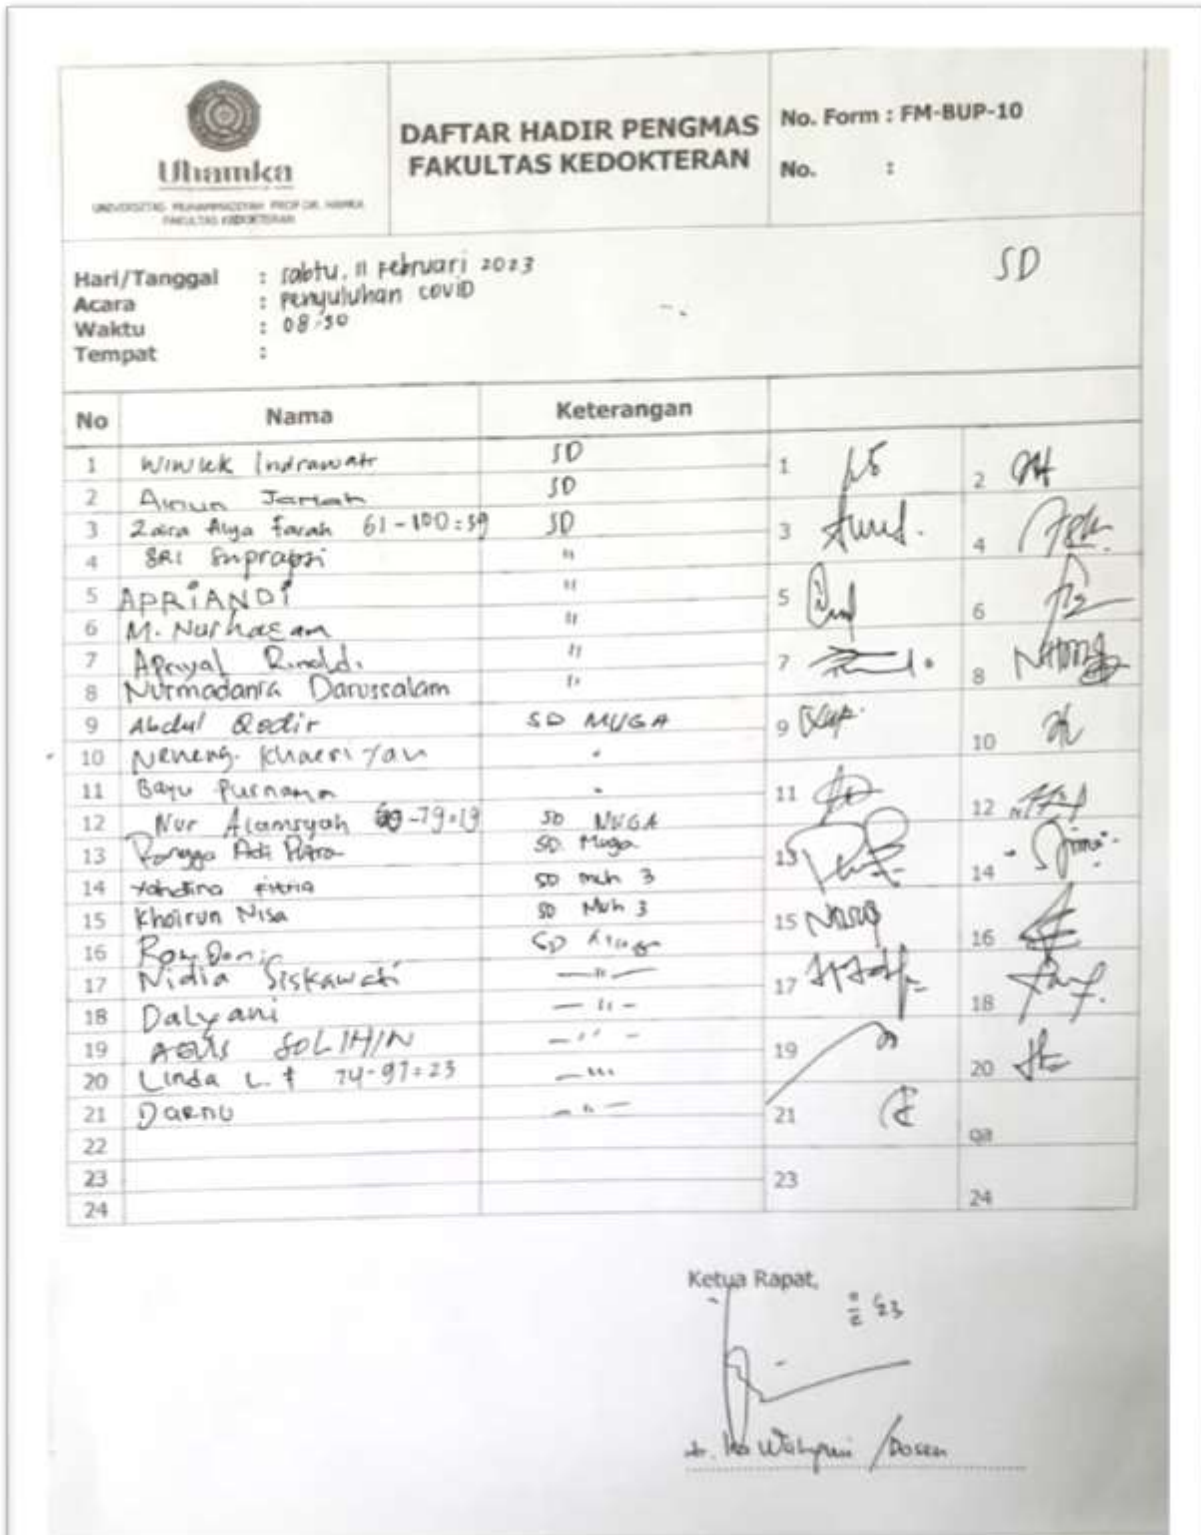 Uhamka
UNIVERSITAS MUHAMMADIYAH PROF DR. HAMKA
FAKULTAS KEDOKTERAN
DAFTAR HADIR PENGMAS
FAKULTAS KEDOKTERAN
No. Form : FM-BUP-10
No. :
SD
Hari/Tanggal : Sabtu, 11 Februari 2023
Acara : Penyuluhan COVID
Waktu : 08.30
Tempat :
No Nama Keterangan
1 Wiwiek Indrawati SD 1 2
2 Ainun Jariah SD
3 Zaira Alya Farah 61-100=39 SD 3 4
4 SRI Suprapti "
5 APRIANDI " 5 6
6 M. Nurhasam "
7 Apriyal Rinaldi " 7 8
8 Nurmadania Darussalam "
9 Abdul Qodir SD MUGA 9 10
10 Neneng Khaeriyah "
11 Bayu Purnama " 11 12
12 Nur Alamsyah -79=19 SD MUGA
13 Rangga Adi Putra SD Muga 13 14
14 Yahdina Fitria SD muh 3
15 Khoirun Nisa SD Muh 3 15 16
16 SD
17 Nidia Siskawati — " — 17 18
18 Dalyani — " —
19 AGUS SOLIHIN — " — 19 20
20 Linda L. f 74-97=23 — "
21 Darnu — " — 21
22
23 23
24 24
Ketua Rapat,
dr. Wahyuni / Dosen